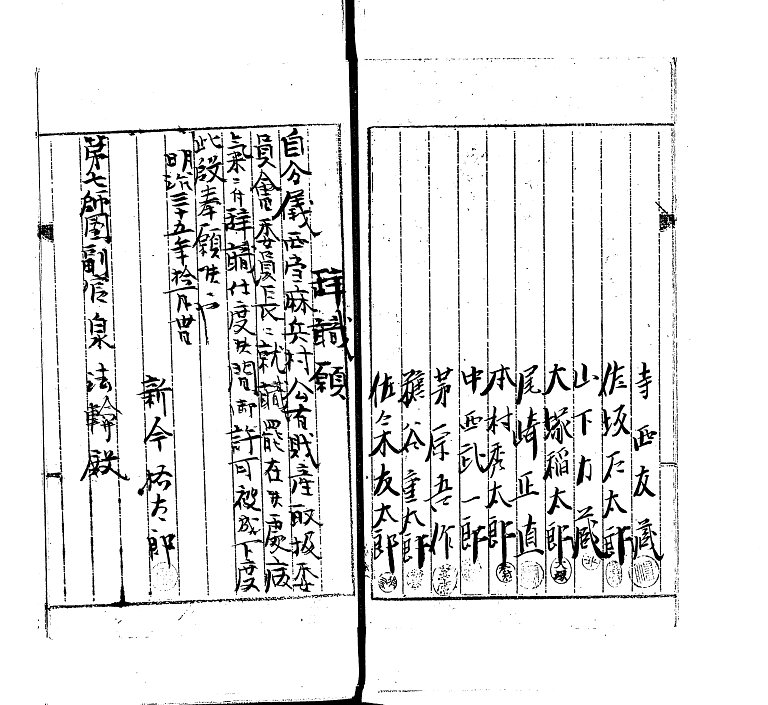 寺西友蔵
佐坂石太郎
山下力蔵
大塚稲太郎
尾崎正直
本村秀太郎
中西武一郎
茅原吾作
穐谷重太郎
佐々木友太郎
辞職願
自分儀西当麻兵村公有財産取扱委
員会委員長ニ就職罷在候処病
気ニ付辞職仕度候間御許可被成下度
此段奉願候也
明治三十五年拾月
新今格太郎
第七師団副官泉法輪殿